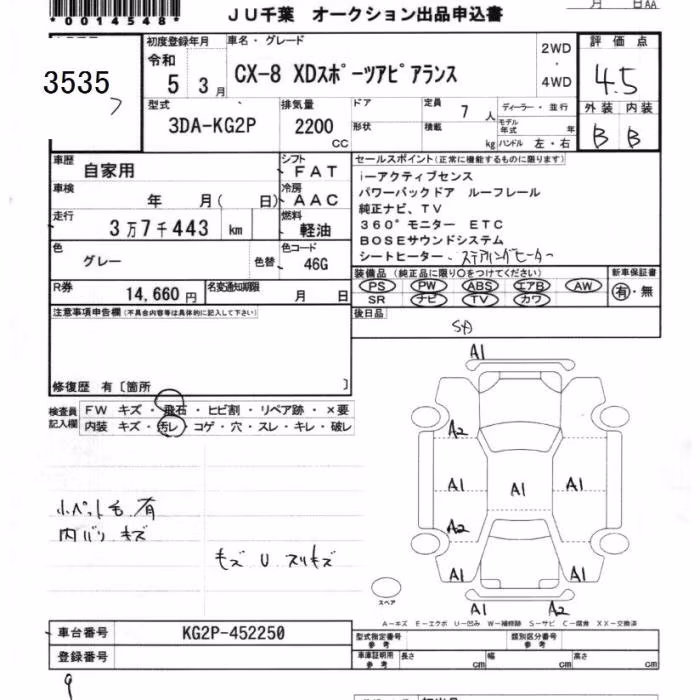 *0014548*
JU千葉 オークション出品申込書
月 日AA
3535
初度登録年月
令和
5 3月
車名・グレード
CX-8 XDスポーツアピアランス
2WD
・
4WD
評価点
4.5
外装 内装
B B
型式
3DA-KG2P
排気量
2200 CC
ドア
形状
定員 7 人
積載 kg
ディーラー・並行
モデル年式 年
ハンドル 左・右
車歴
自家用
シフト
FAT
車検
年 月( 日)
冷房
AAC
走行
3万7千443 km
燃料
軽油
色
グレー
色替
色コード
46G
R券
14,660円
名変通知期限
月 日
セールスポイント(正常に機能するものに限ります)
i-アクティブセンス
パワーバックドア ルーフレール
純正ナビ、TV
360°モニター ETC
BOSEサウンドシステム
シートヒーター、ステアリングヒーター
装備品(純正品に限り○をつけてください)
PS PW ABS エアB AW
SR ナビ TV カワ
新車保証書
有・無
後日品
注意事項申告欄(不具合内容等は具体的に記入して下さい)
修復歴 有〔箇所 〕
検査員記入欄
FW キズ・飛石・ヒビ割・リペア跡・×要
内装 キズ・汚レ・コゲ・穴・スレ・キレ・破レ
小ペット毛 有
内バリ キズ
キズ U スリキズ
A1
A2
A1 A1 A1
A2
A1 A1
A1 A2
スペア
A-キズ E-エクボ U-凹み W-補修跡 S-サビ C-腐食 XX-交換済
車台番号
KG2P-452250
登録番号
型式指定番号
参考
類別区分番号
参考
車庫証明用
参考
長さ cm 幅 cm 高さ cm
9